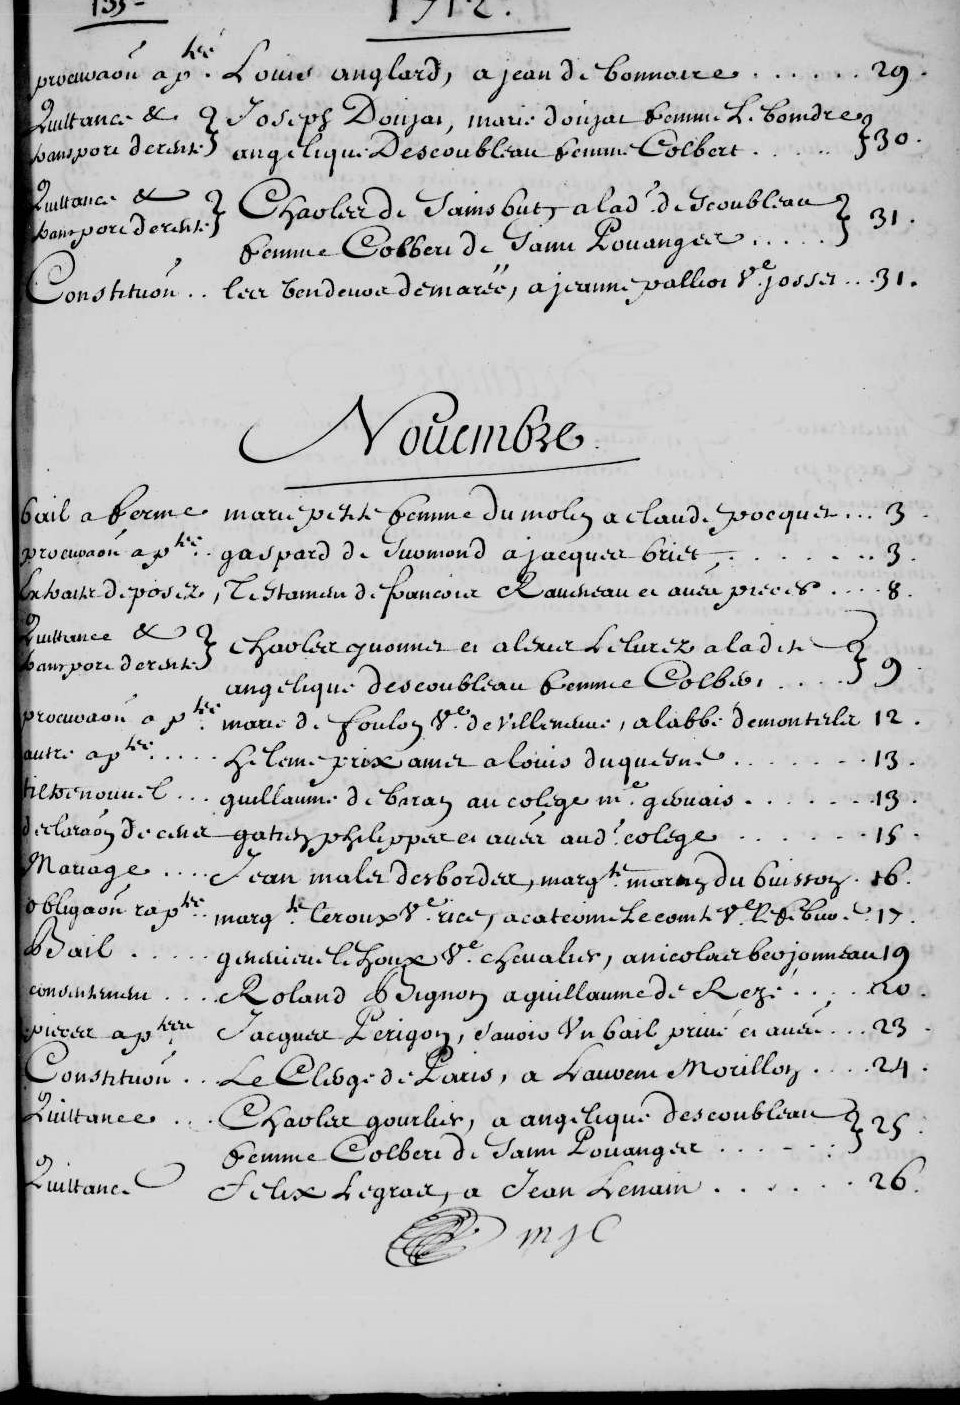 135
1712.
procuraon a ptee. Louis anglard, a jean de bonnaire ...... 29.
Quittance & } Joseph Doujat, marie doujat femme Le boindre
transport de rente } angelique Descoubleau femme Colbert ..... } 30.
Quittance & } Charles de Sainsbut, a lad. descoubleau
transport de rente } femme Colbert de Saint Pouanges ..... } 31.
Constituon .. les vendeurs de marée, a jeanne palliot Ve josset ... 31.
Nouembre
bail a ferme marie petit femme du molin a claude pocquet ... 3.
procuraon a ptee. gaspard de a jacques briet, ....... 3.
Extraits deposez, Testament de francois Rauineau et autre pieces .... 8.
Quittance & } Charles guonnet et alexis Leturez a ladite
transport de rente } angelique descoubleau femme Colbert .... } 9
procuraon a ptee. marie de foulon Ve. de Villeneuve, a labbé de 12.
autre a ptee ..... helene prix amet a louis duquesne ....... 13.
tiltre nouuel ... guillaume de baran au colege me. geruais ....... 13.
declaraon de cens gatien philippes et autre aud. colege ...... 15.
Mariage .... Jean malet desbordes, margte du buisson. 16.
obligaon ra ptee. margte leroux Ve rice, a caterine Lecomte Ve 17.
Bail ..... geneuieue lehoux Ve. Chevalier, a nicolas bourjonneau 19
consentement .... Roland Bignon a guillaume de Rezé ..... 20.
pieces a ptees Jacques Perigon, sauoir Un bail privé et autre ... 23.
Constituon .. Le Clergé de Paris, a Laurent Morillon ..... 24.
Quittance ... Charles gourlier, a angelique descoubleau
femme Colbert de Saint Pouanges ...... } 25.
Quittance Felix Legras, a Jean Lenain ...... 26.